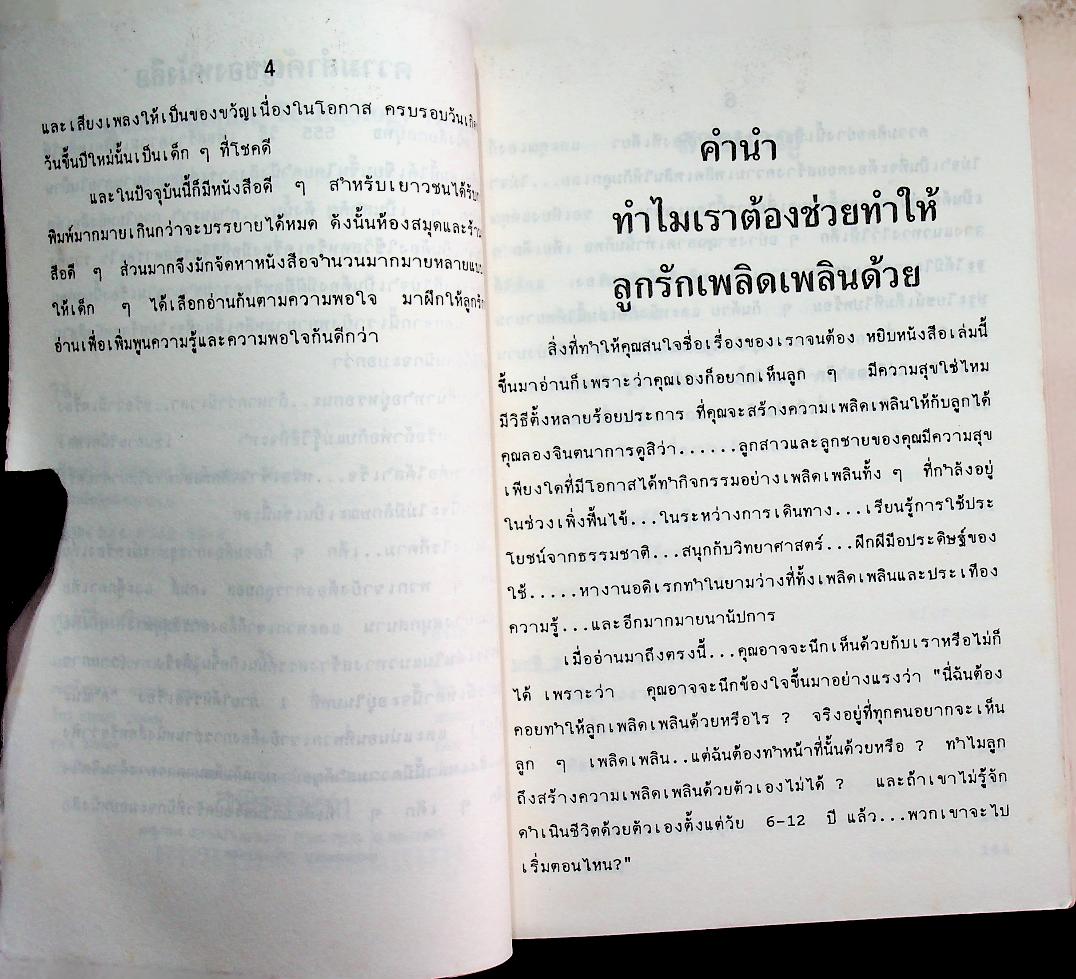 4
และเสียงเพลงให้เป็นของขวัญเนื่องในโอกาส ครบรอบวันเกิด
วันขึ้นปีใหม่นั้นเป็นเด็ก ๆ ที่โชคดี
และในปัจจุบันนี้ก็มีหนังสือดี ๆ สำหรับเยาวชนได้รับก
พิมพ์มากมายเกินกว่าจะบรรยายได้หมด ดังนั้นห้องสมุดและร้าน
สือดี ๆ ส่วนมากจึงมักจัดหาหนังสือจำนวนมากมายหลายแบบ
ให้เด็ก ๆ ได้เลือกอ่านกันตามความพอใจ มาฝึกให้ลูกรัก
อ่านเพื่อเพิ่มพูนความรู้และความพอใจกันดีกว่า
คำนำ
ทำไมเราต้องช่วยทำให้
ลูกรักเพลิดเพลินด้วย
สิ่งที่ทำให้คุณสนใจชื่อเรื่องของเราจนต้อง หยิบหนังสือเล่มนี้
ขึ้นมาอ่านก็เพราะว่าคุณเองก็อยากเห็นลูก ๆ มีความสุขใช่ไหม
มีวิธีตั้งหลายร้อยประการ ที่คุณจะสร้างความเพลิดเพลินให้กับลูกได้
คุณลองจินตนาการดูสิว่า......ลูกสาวและลูกชายของคุณมีความสุข
เพียงใดที่มีโอกาสได้ทำกิจกรรมอย่างเพลิดเพลินทั้ง ๆ ที่กำลังอยู่
ในช่วงเพิ่งฟื้นไข้...ในระหว่างการเดินทาง...เรียนรู้การใช้ประ
โยชน์จากธรรมชาติ...สนุกกับวิทยาศาสตร์...ฝึกฝีมือประดิษฐ์ของ
ใช้.....หางานอดิเรกทำในยามว่างที่ทั้งเพลิดเพลินและประเทือง
ความรู้...และอีกมากมายนานัปการ
เมื่ออ่านมาถึงตรงนี้...คุณอาจจะนึกเห็นด้วยกับเราหรือไม่ก็
ได้ เพราะว่า คุณอาจจะนึกข้องใจขึ้นมาอย่างแรงว่า "นี่ฉันต้อง
คอยทำให้ลูกเพลิดเพลินด้วยหรือไร ? จริงอยู่ที่ทุกคนอยากจะเห็น
ลูก ๆ เพลิดเพลิน..แต่ฉันต้องทำหน้าที่นั้นด้วยหรือ ? ทำไมลูก
ถึงสร้างความเพลิดเพลินด้วยตัวเองไม่ได้ ? และถ้าเขาไม่รู้จัก
ดำเนินชีวิตด้วยตัวเองตั้งแต่วัย 6-12 ปี แล้ว...พวกเขาจะไป
เริ่มตอนไหน?"